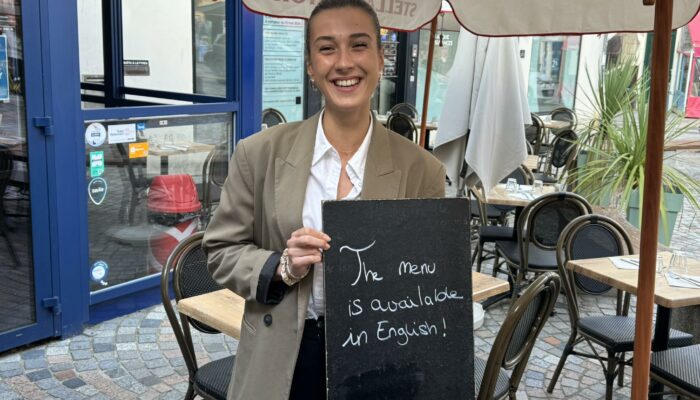 STELL
The menu
is available
in English!